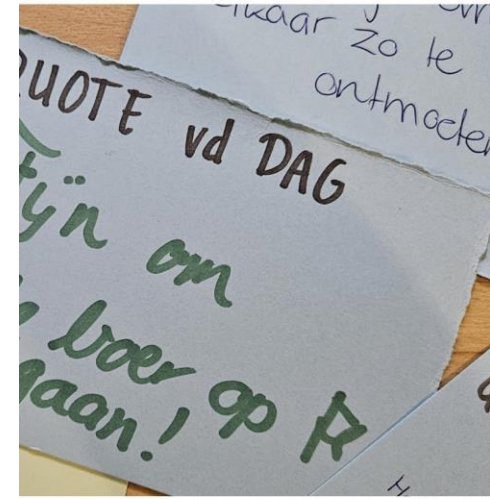 elkaar zo te
ontmoeten
QUOTE vd DAG
Fijn om
boer op
gaan!